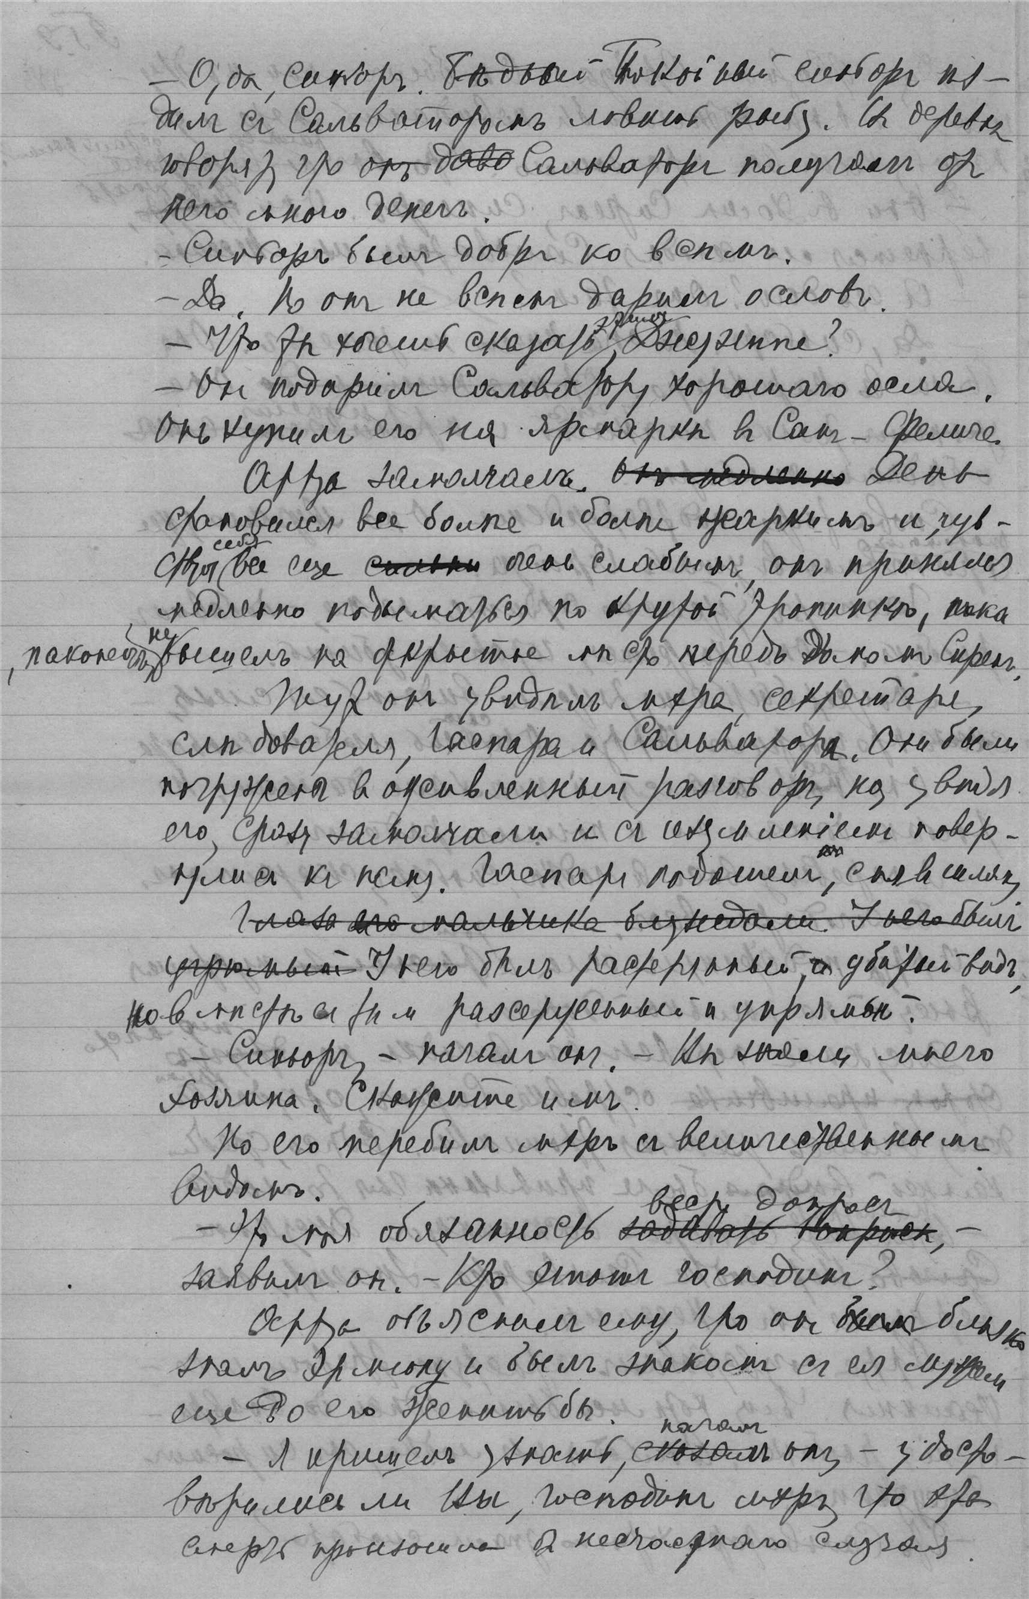 — О, да, синьоръ. Бѣдный Покойный синьоръ ѣз-
дилъ съ Сальваторомъ ловить рыбу. Въ деревнѣ
говорят, что онъ даво Сальваторъ получалъ от
него много денегъ.
— Синьоръ былъ добръ ко всѣмъ.
— Да. Но он не всѣмъ дарилъ ословъ.
— Что ты хочешь сказать этимъ, Джузеппе?
— Онъ подарилъ Сальватору хорошаго осла.
Онъ купилъ его на ярмаркѣ въ Санъ-Феличе.
Артуа замолчалъ. Онъ медленно День
становился все болѣе и болѣе жаркимъ и, чув-
ствуя себя все еще сильно очень слабымъ, онъ принялся
медленно подыматься по крутой тропинкѣ, пока
, наконецъ, не вышелъ на открытое мѣсто передъ Домомъ Сиренъ.
Тут он увидѣлъ мэра, секретаря,
слѣдователя, Гаспара и Сальватора. Они были
погружены в оживленный разговоръ, но, увидя
его, сразу замолчали и съ изумленіемъ повер-
нулись къ нему. Гаспаръ подошелъ, снявъ шляпу
Глаза его мальчика блуждали. У него былъ
угрюмый У него былъ растерянный, и убитый видъ,
но вмѣстѣ съ тѣмъ разсерженный и упрямый.
— Синьоръ, — началъ он. — Вы знали моего
хозяина. Скажите имъ.
Но его перебилъ мэръ съ величественнымъ
видомъ.
весть допросъ
— Это моя обязанность задавать вопросы, —
заявилъ он. — Кто этотъ господинъ?
Артуа объяснилъ ему, что он былъ близко
зналъ Эрмiону и былъ знакомъ съ ея мужемъ
еще до его женитьбы.
началъ
— Я пришелъ узнать, сказалъ онъ, — удосто-
вѣрились ли Вы, господинъ мэръ, что эта
смерть произошла отъ несчастнаго случая